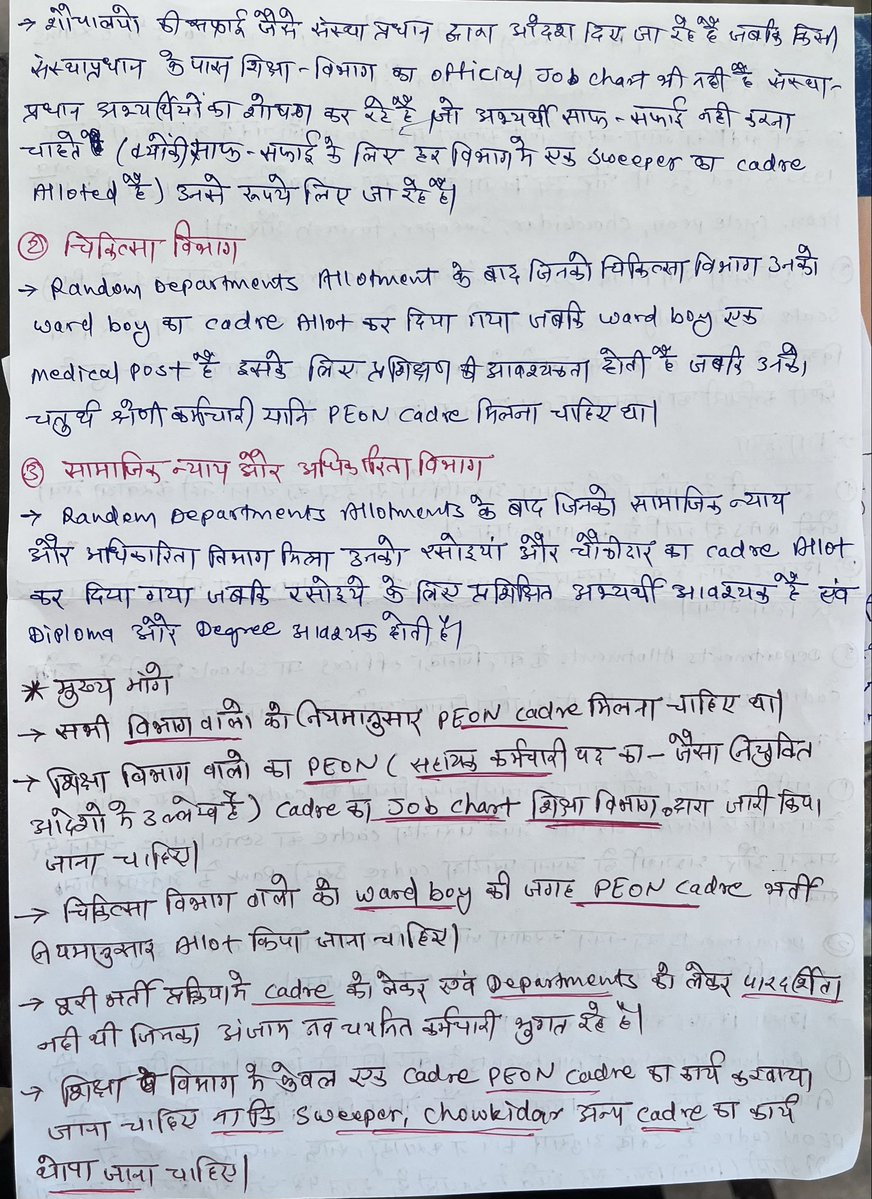 → शौचालयो की सफाई जैसे संस्था प्रधान द्वारा आदेश दिए जा रहे है जबकि किसी
संस्थाप्रधान के पास शिक्षा-विभाग का official Job chart भी नही है संस्था-
प्रधान अभ्यर्थियों का शोषण कर रहे है, जो अभ्यर्थी साफ-सफाई नही करना
चाहते (क्योंकी साफ-सफाई के लिए हर विभाग मे एक Sweeper का cadre
Alloted है) उनसे रूपये लिए जा रहे है।
② चिकित्सा विभाग
→ Random Departments Allotment के बाद जिनको चिकित्सा विभाग उनको
ward boy का cadre Allot कर दिया गया जबकि ward boy एक
medical post है इसके लिए प्रशिक्षण की आवश्यकता होती है जबकि उनको,
चतुर्थ श्रेणी कर्मचारी यानि PEON cadre मिलना चाहिए था।
③ सामाजिक न्याय और अधिकारिता विभाग
→ Random Departments Allotments के बाद जिनको सामाजिक न्याय
और अधिकारिता विभाग मिला उनको रसोइयां और चौकीदार का cadre Allot
कर दिया गया जबकि रसोइये के लिए प्रशिक्षित अभ्यर्थी आवश्यक है एवं
Diploma और Degree आवश्यक होती है।
* मुख्य मांगे
→ सभी विभाग वालो को नियमानुसार PEON cadre मिलना चाहिए था।
→ शिक्षा विभाग वालो का PEON (सहायक कर्मचारी पद का - जैसा नियुक्ति
आदेशो मे उल्लेख है) cadre का Job chart शिक्षा विभाग द्वारा जारी किया
जाना चाहिए।
→ चिकित्सा विभाग वालो को ward boy की जगह PEON cadre भर्ती
नियमानुसार Allot किया जाना चाहिए।
→ पूरी भर्ती प्रक्रिया मे cadre को लेकर एवं Departments को लेकर पारदर्शिता
नही थी जिनका अंजाम नव चयनित कर्मचारी भुगत रहे है।
→ शिक्षा विभाग मे केवल एक cadre PEON cadre का कार्य करवाया
जाना चाहिए ना कि Sweeper, chowkidar अन्य cadre का कार्य
थोपा जाना चाहिए।